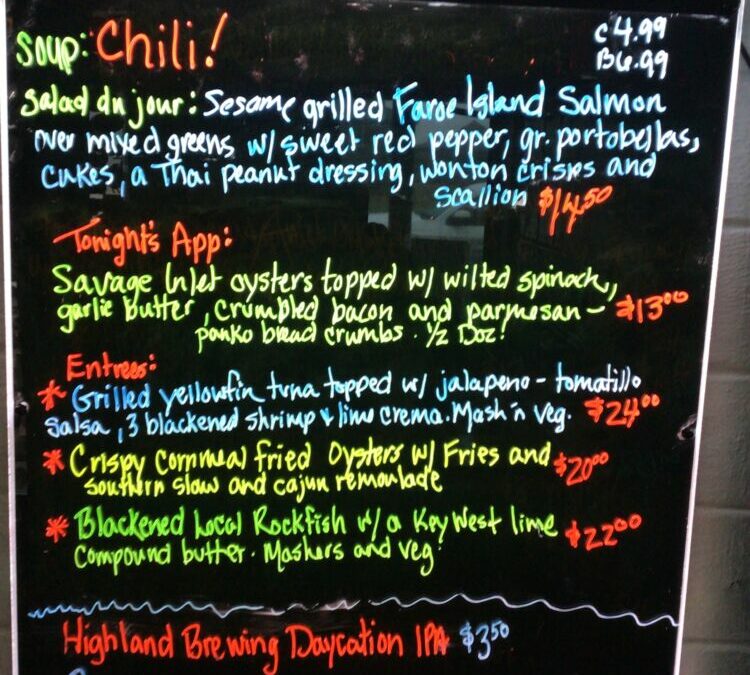 Soup: Chili! C 4.99
B 6.99
Salad du jour: Sesame grilled Faroe Island Salmon
over mixed greens w/ sweet red pepper, gr. portobellas,
cukes, a Thai peanut dressing, wonton crisps and
scallion $14.50
Tonight's App:
Savage Inlet oysters topped w/ wilted spinach,
garlic butter, crumbled bacon and parmesan- $13.00
panko bread crumbs. 1/2 Doz!
Entrees:
* Grilled yellowfin tuna topped w/ jalapeno-tomatillo
salsa, 3 blackened shrimp & lime crema. Mash n veg. $24.00
* Crispy cornmeal fried Oysters w/ Fries and $20.00
southern slaw and cajun remoulade
* Blackened Local Rockfish w/ a Key West lime $22.00
compound butter. Mashers and veg.
Highland Brewing Daycation IPA $3.50